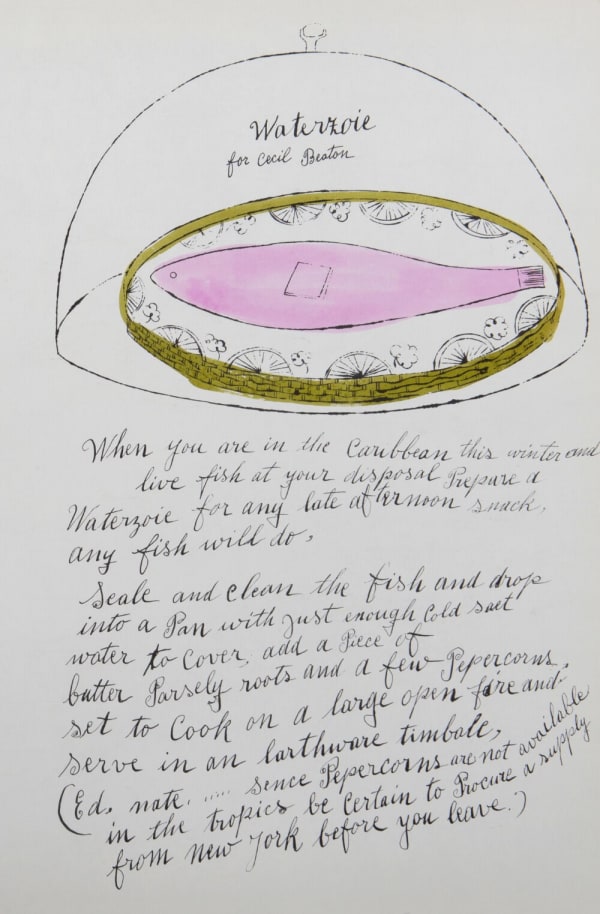 Waterzoie
for Cecil Beaton
When you are in the Caribbean this winter and
live fish at your disposal Prepare a
Waterzoie for any late afternoon snack,
any fish will do,
Scale and clean the fish and drop
into a Pan with just enough Cold salt
water to cover, add a Piece of
butter Parsely roots and a few Pepercorns,
set to Cook on a large open fire and
serve in an earthware timbale,
(Ed. note. ..... sence Pepercorns are not available
in the tropics be certain to Procure a supply
from New York before you leave.)